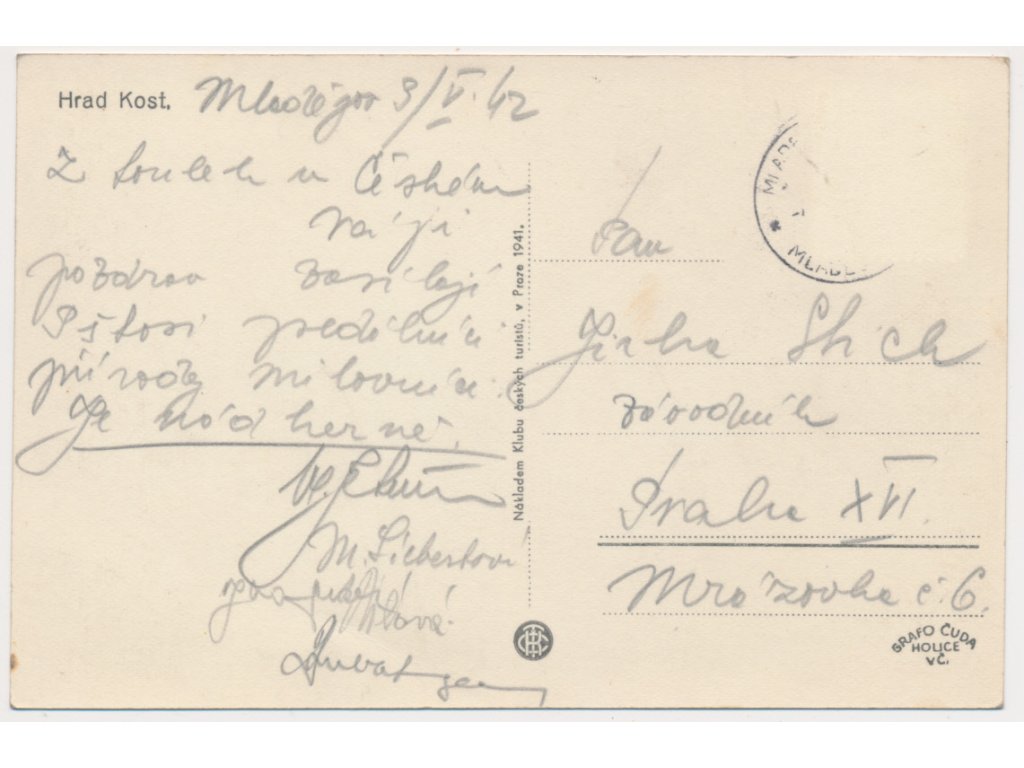 Hrad Kost.
Mladějov 3/V. 42
Z toulek v Českém
ráji
pozdrav zasílají
Pštrosi nedělní
přírody milovníci.
Je nádherně.
M. Siebertová
Nákladem Klubu českých turistů, v Praze 1941.
MLADĚ
MLADĚ
Pan
Jirka Stich
závodník
Praha XVI.
Mrázovka č. 6.
GRAFO ČUDA
HOLICE
v Č.